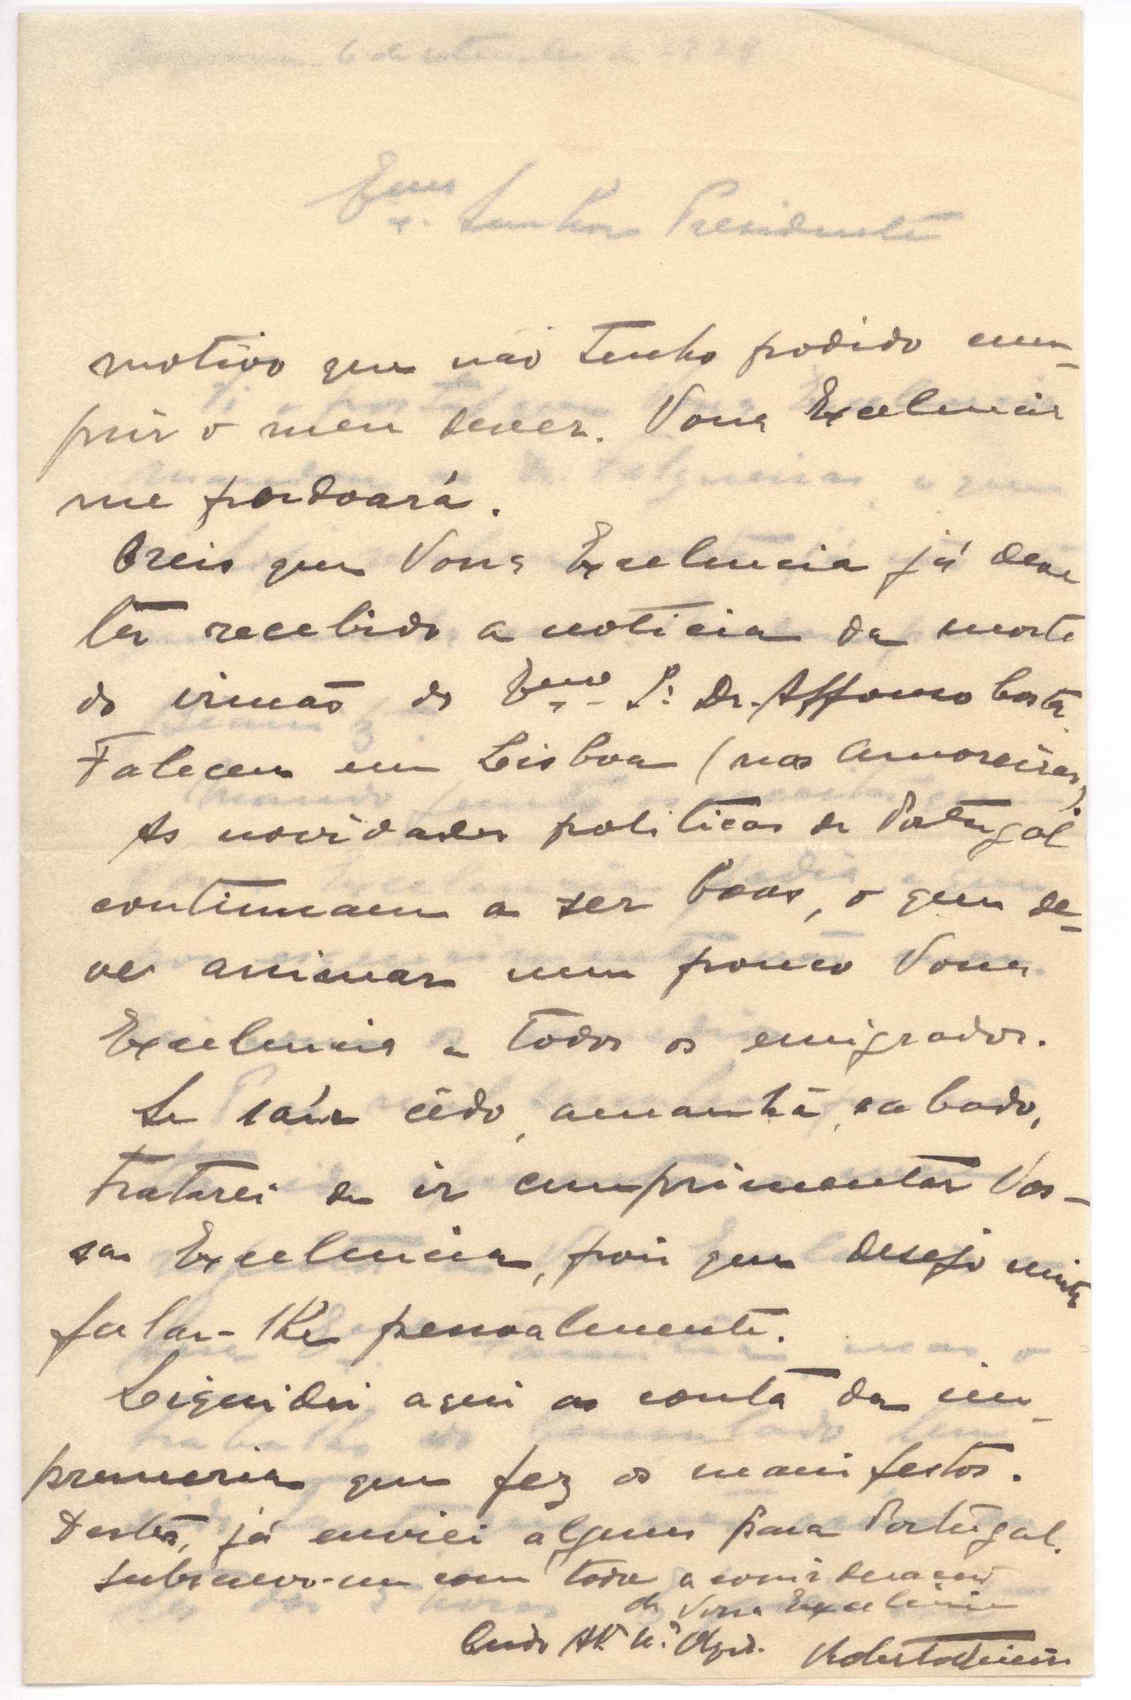 6 de setembro de 1928
Exmo. Senhor Presidente
motivo que não tenho podido cum-
prir o meu dever. Vossa Excelencia
me perdoará.
Creio que Vossa Excelencia já deve
ter recebido a noticia da morte
do irmão do Exmo. Sr. Dr. Affonso Costa.
Faleceu em Lisboa (nas Amoreiras).
As novidades politicas de Portugal
continuam a ser boas, o que de-
ve animar um pouco Vossa
Excelencia e todos os emigrados.
Se saír cêdo, amanhã, sabado,
tratarei de ir cumprimentar Vos-
sa Excelencia, pois que desejo muito
falar-lhe pessoalmente.
Liquidei aqui a conta da im-
prensa que fez os manifestos.
Destes, já enviei alguns para Portugal.
Subscrevo-me com toda a consideração
de Vossa Excelencia
Crdo Att.